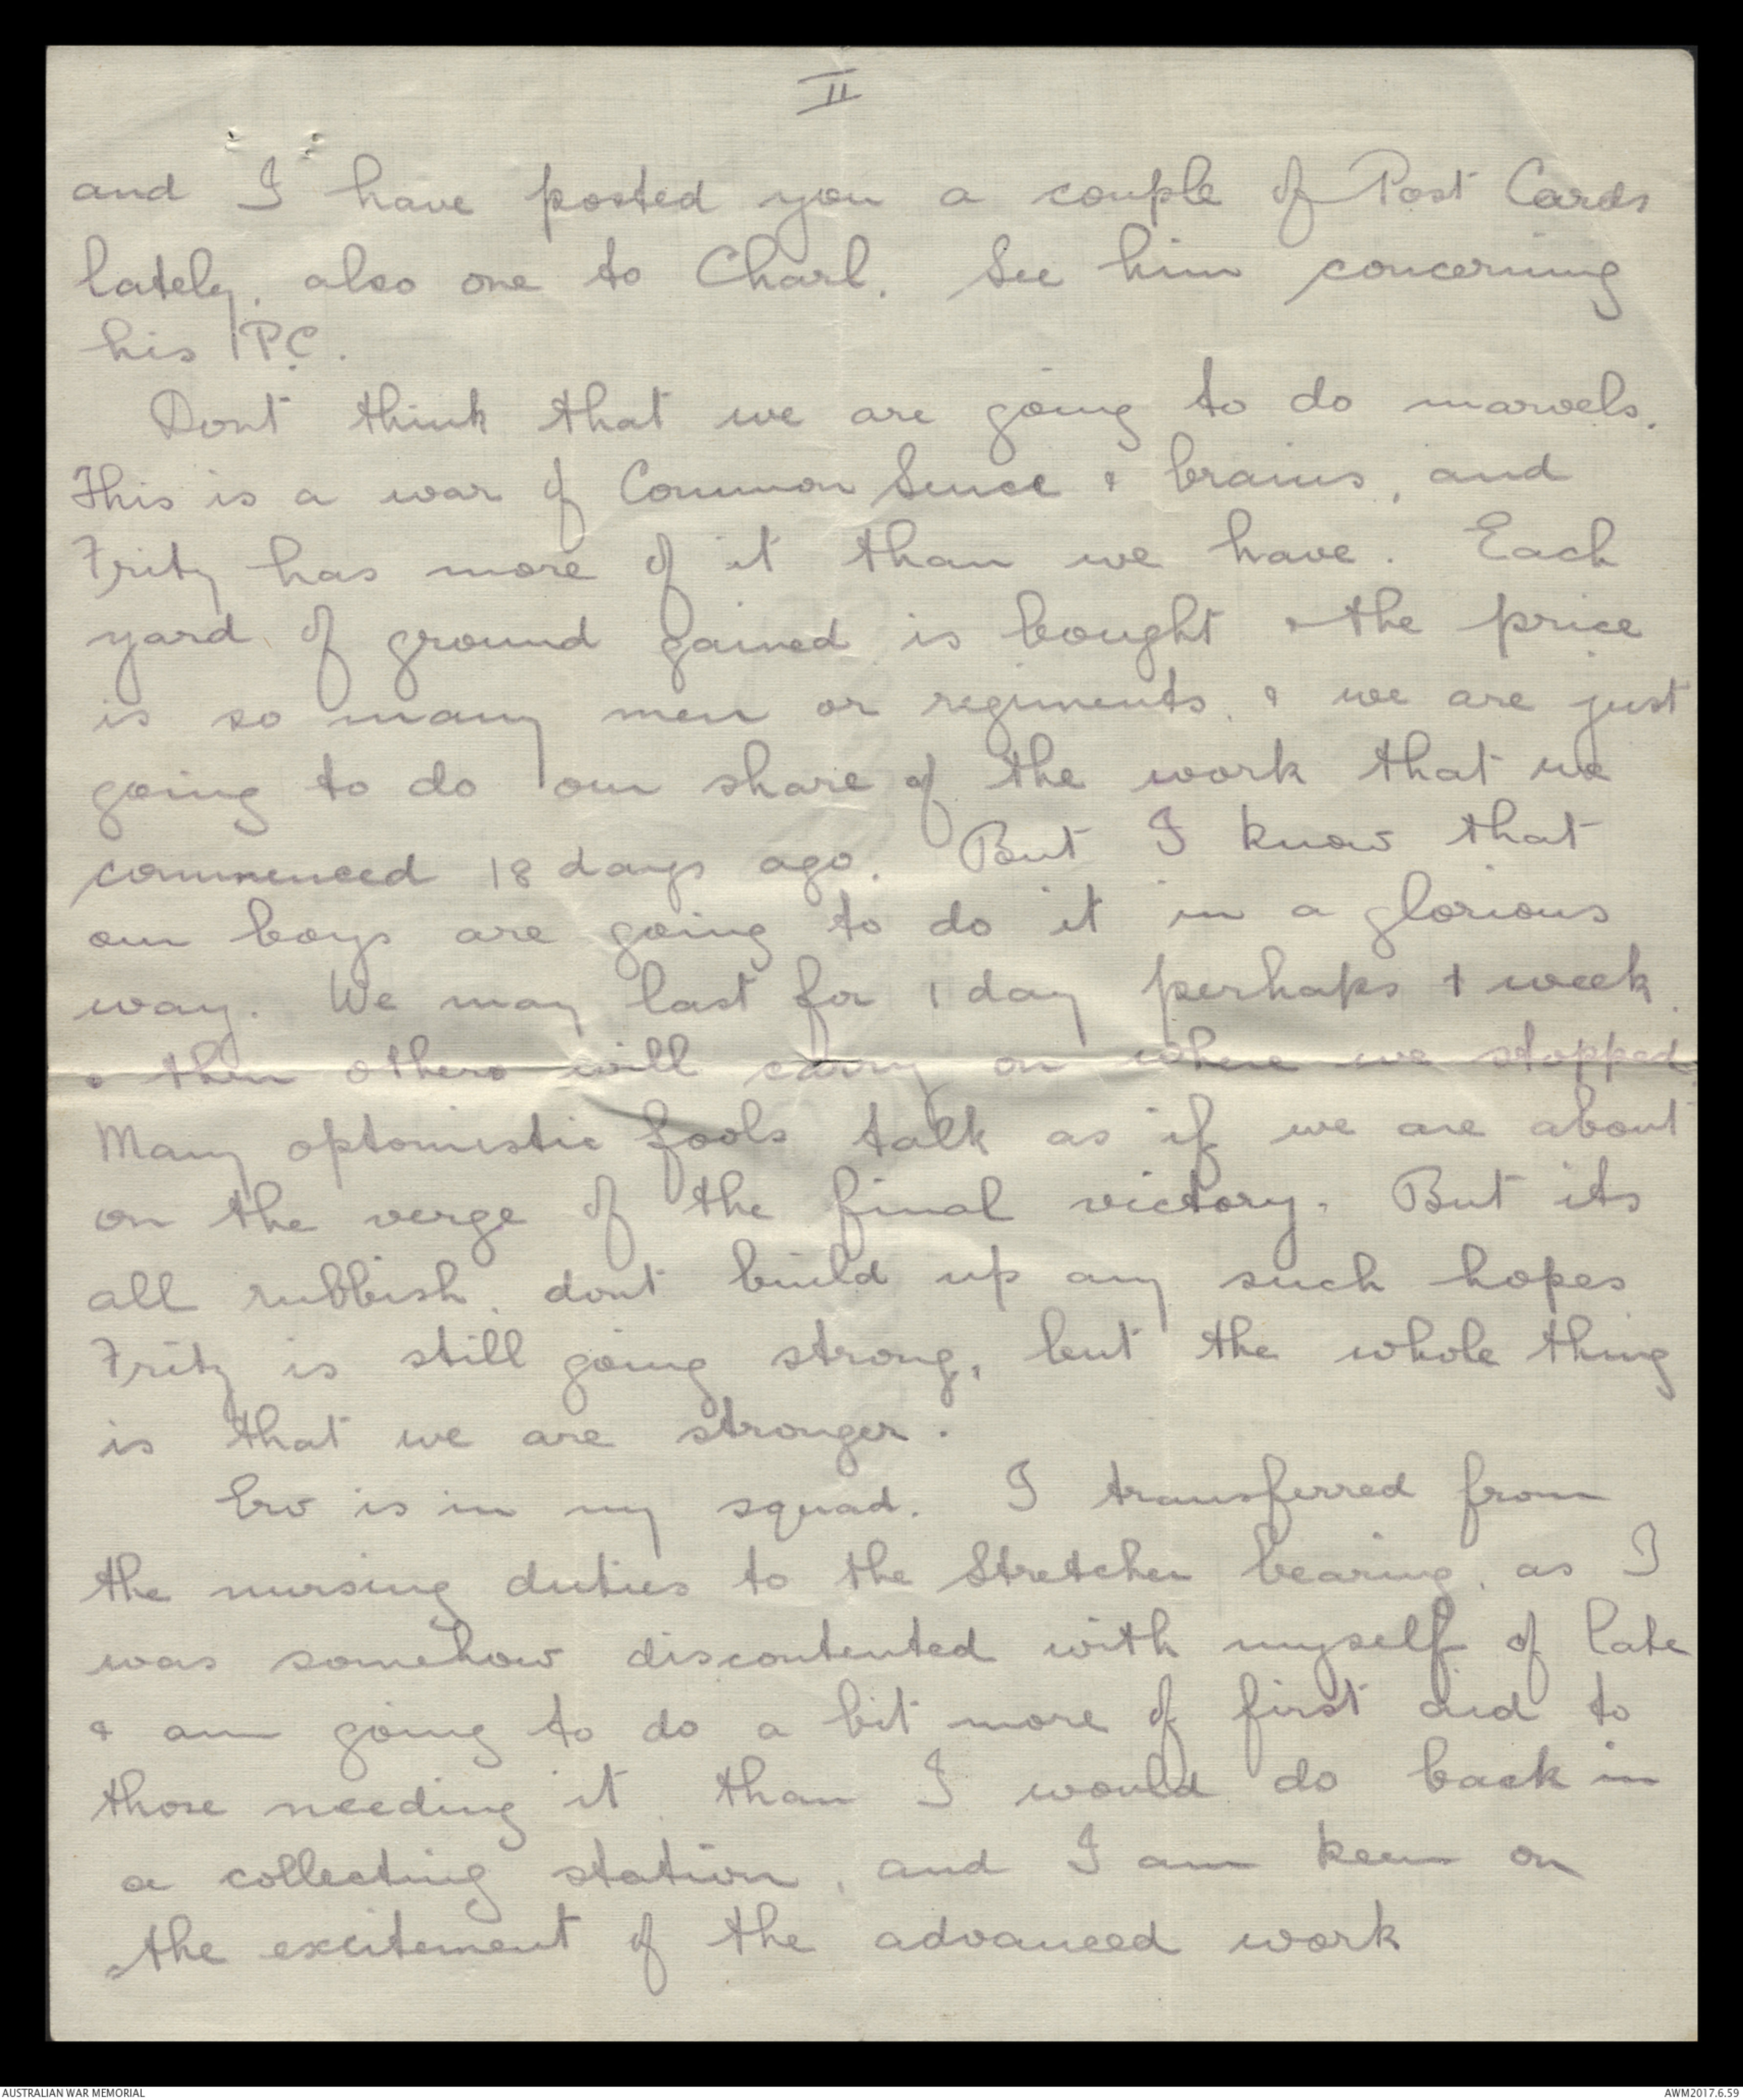 II
and I have posted you a couple of Post Cards
lately, also one to Charl. See him concerning
his P.C.
Dont think that we are going to do marvels.
This is a war of Common Sence & brains, and
Fritz has more of it than we have. Each
yard of ground gained is bought & the price
is so many men or regiments, & we are just
going to do our share of the work that we
commenced 18 days ago. But I know that
our boys are going to do it in a glorious
way. We may last for 1 day perhaps 1 week
& then others will carry on where we stopped.
Many optomistic fools talk as if we are about
on the verge of the final victory. But its
all rubbish, dont build up any such hopes
Fritz is still going strong, but the whole thing
is that we are stronger.
Erv is in my squad. I transferred from
the nursing duties to the Stretcher bearing, as I
was somehow discontented with myself of late
& am going to do a bit more of first aid to
those needing it than I would do back in
a collecting station, and I am keen on
the excitement of the advanced work
AUSTRALIAN WAR MEMORIAL
AWM2017.6.59